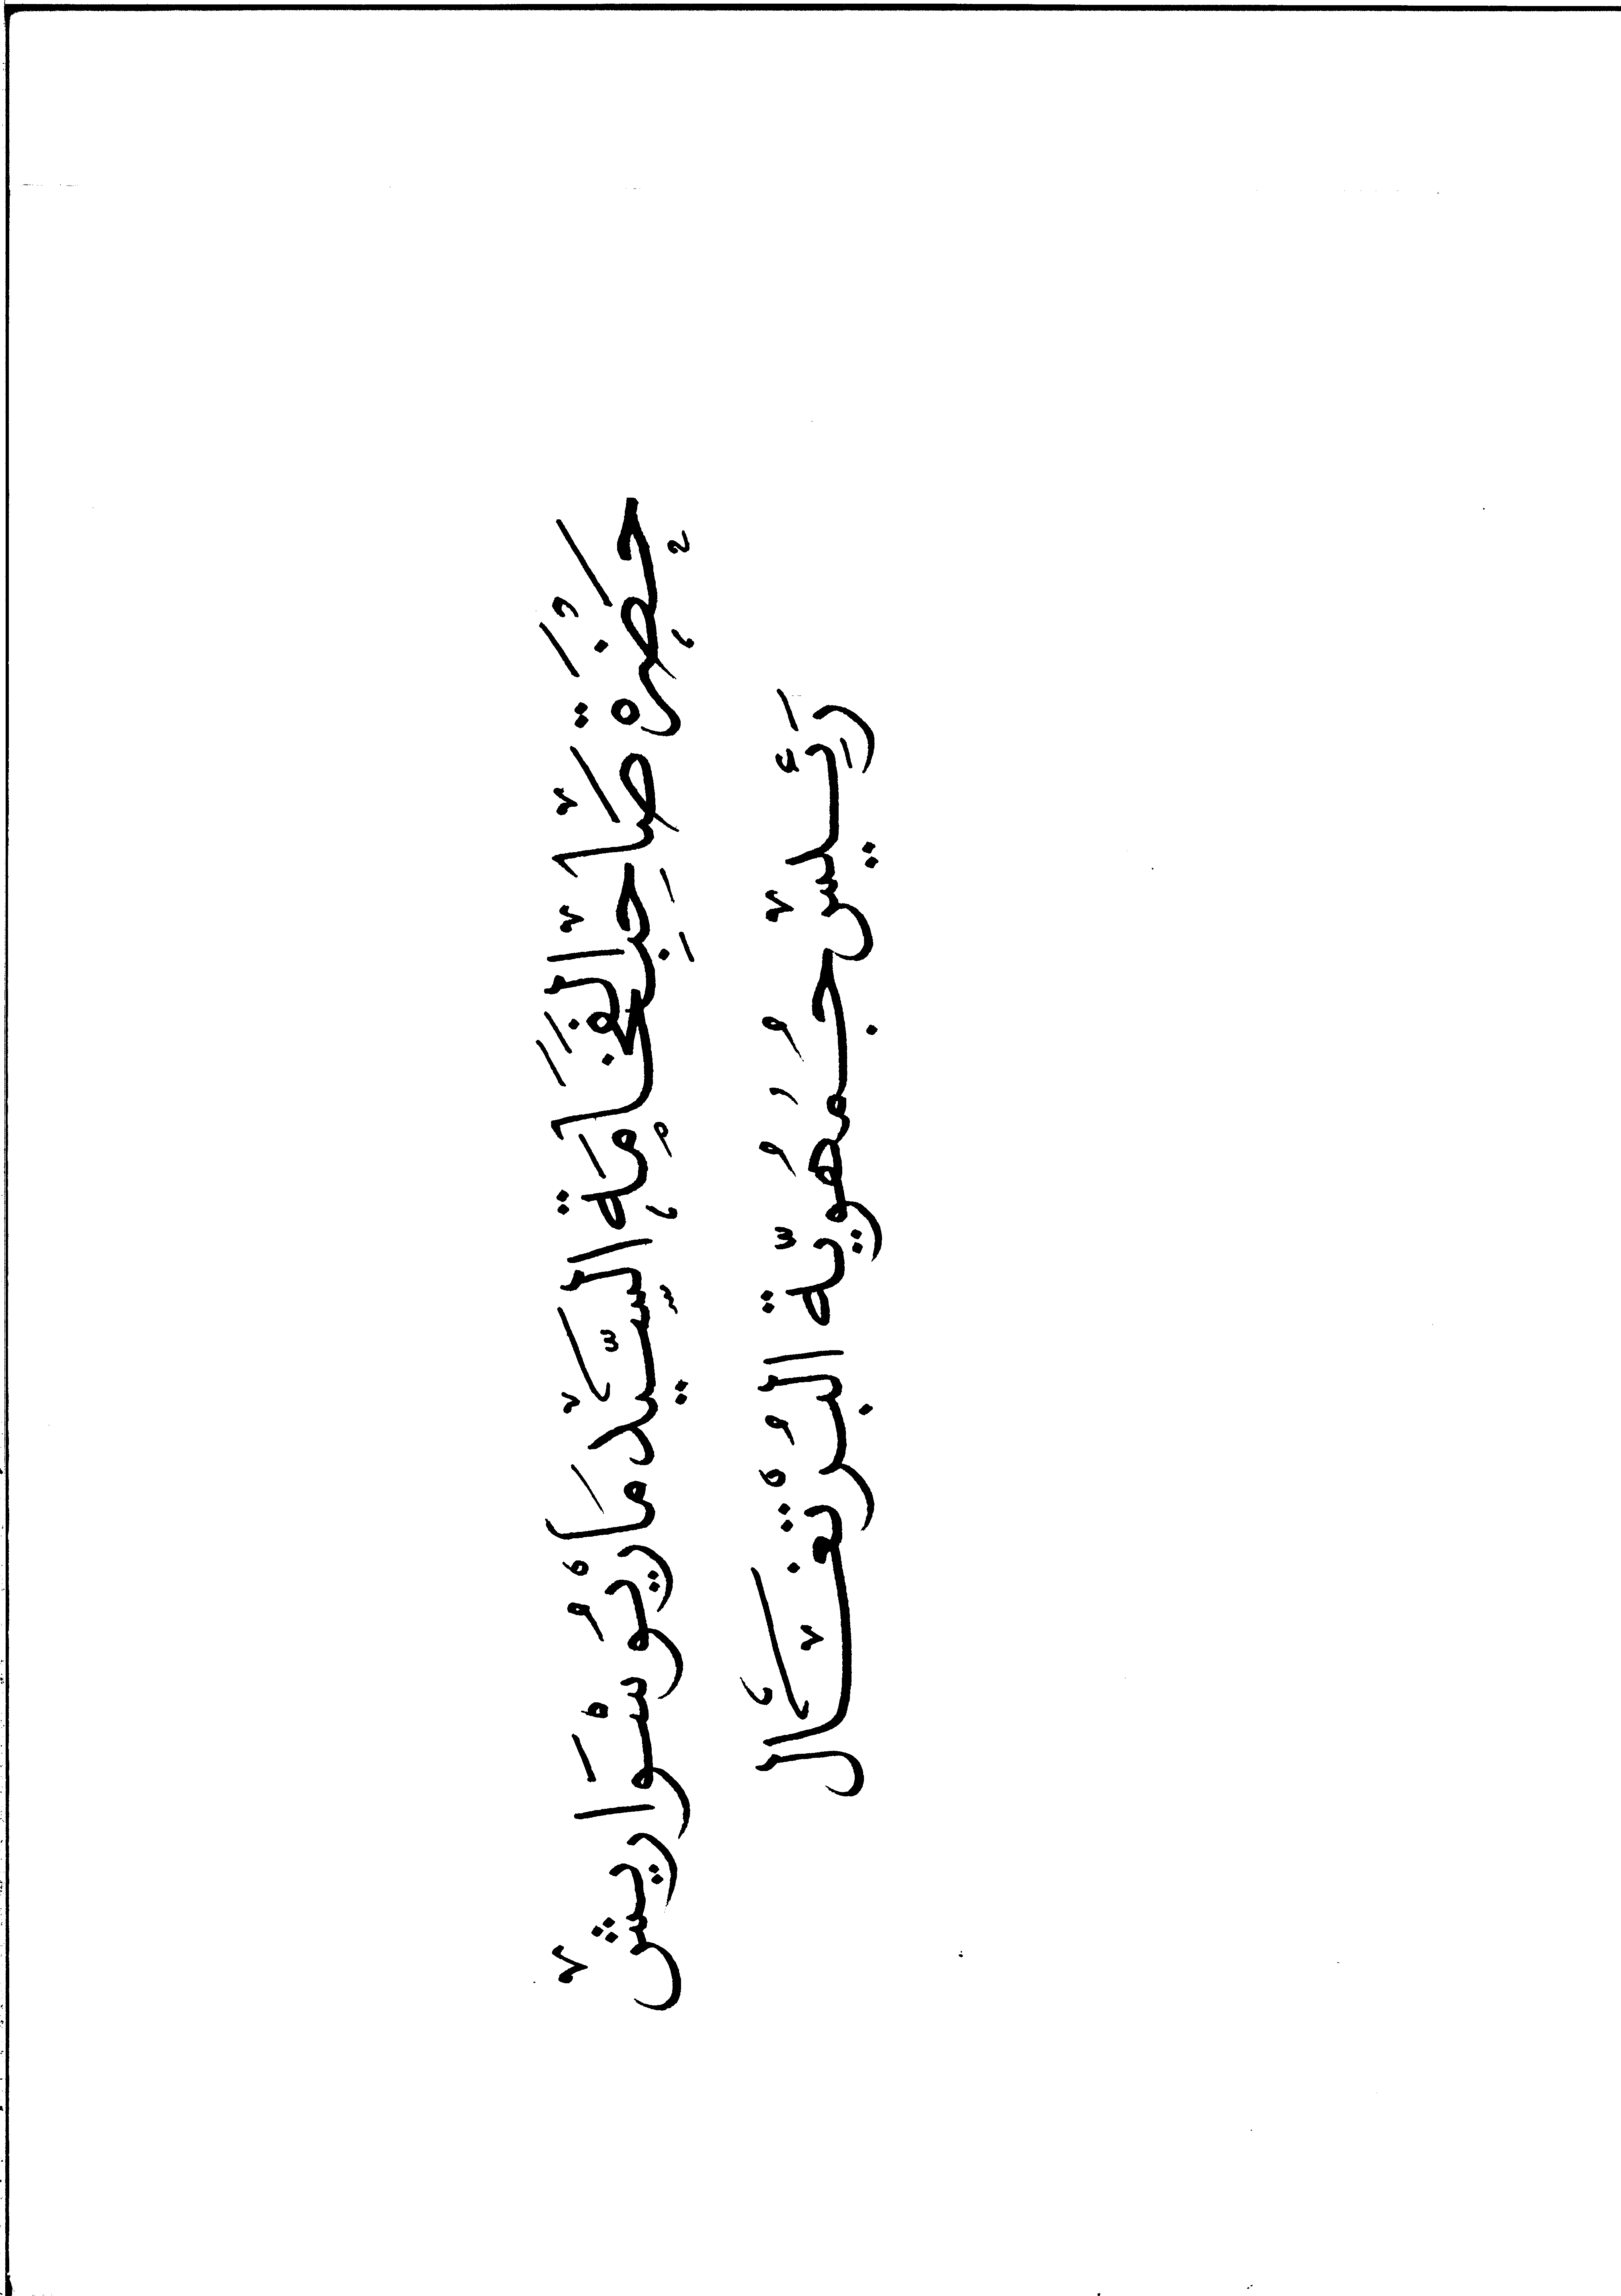 حضرة صاحب الفخامة السيد ماريو سواريش
رئيس جمهورية البرتغال